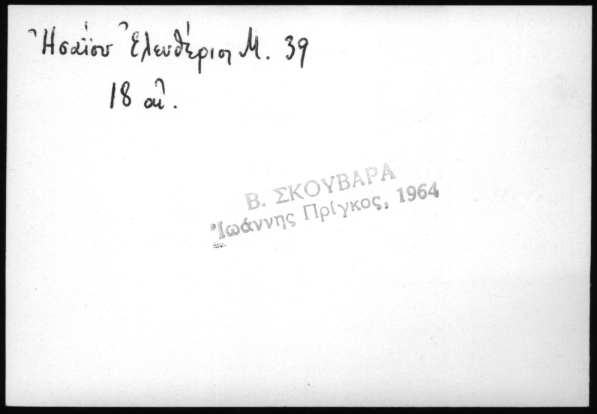 Ἡσαΐου Ἐλευθέριος Μ. 39
18 αἰ.
Β. ΣΚΟΥΒΑΡΑ
Ἰωάννης Πρίγκος, 1964